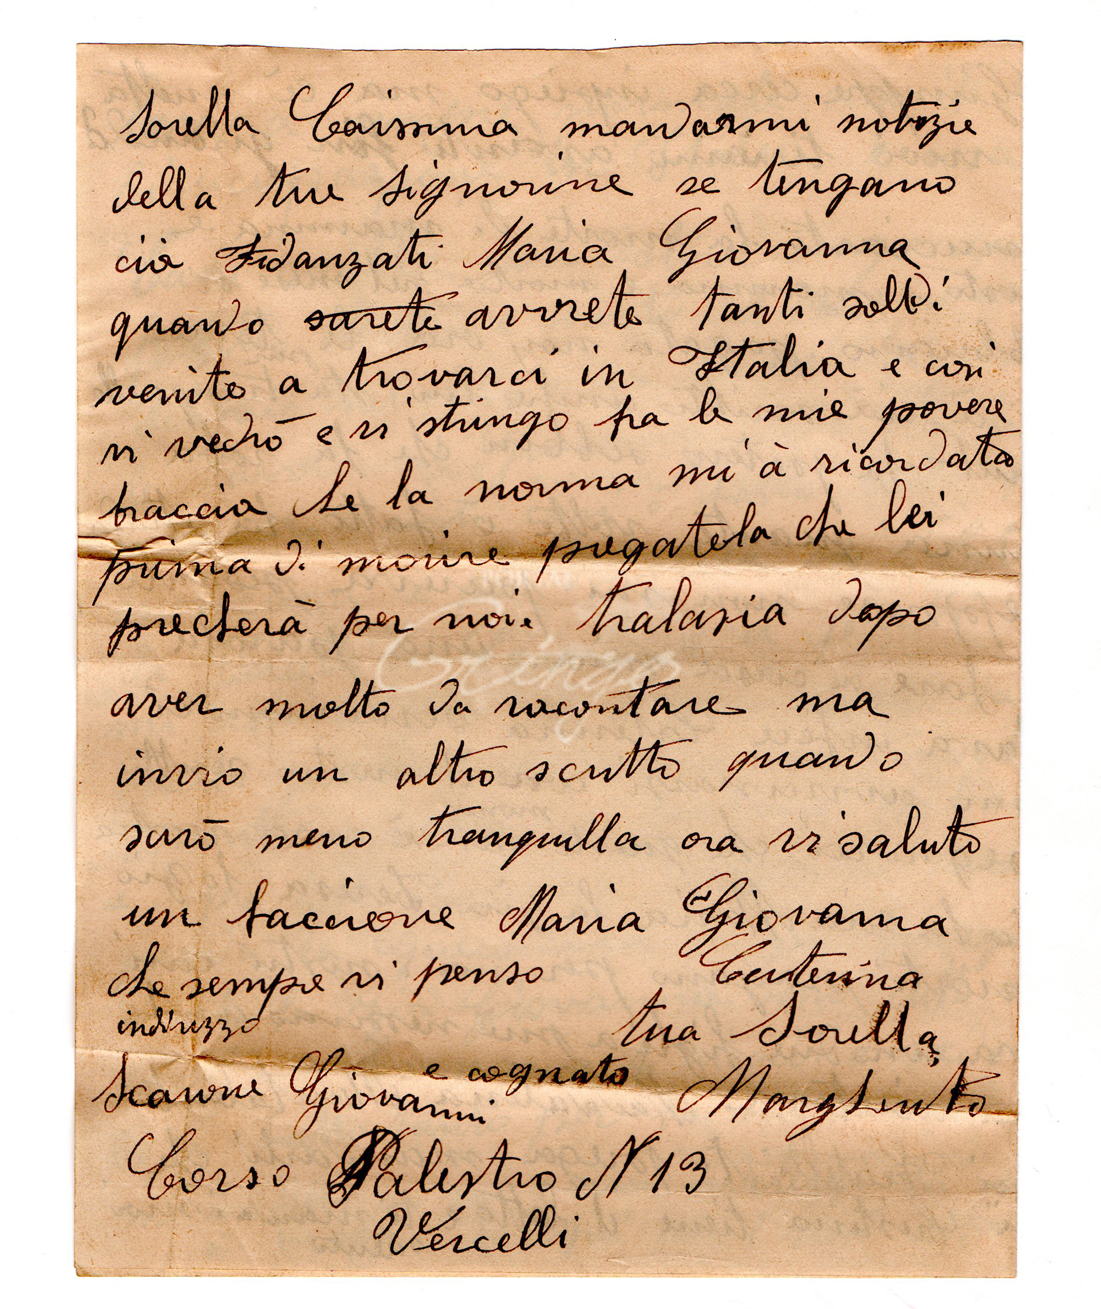 Sorella Carissima mandarmi notizie
della tue signorine se tengano
cià Fidanzati Maria Giovanna
quando sarete avrrete tanti soldi
venite a trovarci in Italia e cosi
vi vedrò e vi stringo fra le mie povere
braccia che la nonna mi à ricordato
prima di morire pregatela che lei
precherà per noi. tralasia dopo
aver molto da racontare ma
invio un altro scritto quando
sarò meno tranquilla ora vi saluto
un baccione Maria Giovanna
che sempre vi penso Cuterina
indirizzo tua Sorella
e cognato
Scarone Giovanni Margherita
Corso Palestro N 13
Vercelli
Gringo